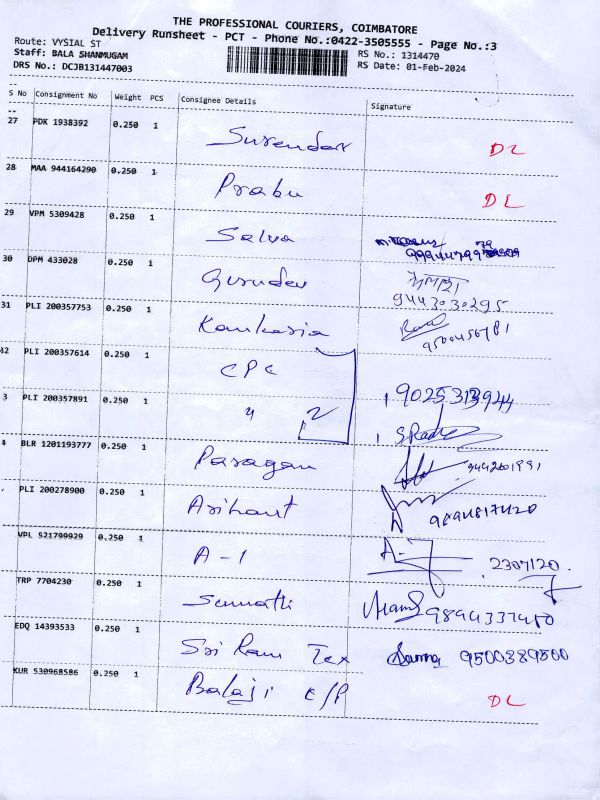 THE PROFESSIONAL COURIERS, COIMBATORE
Delivery Runsheet - PCT - Phone No.:0422-3505555 - Page No.:3
Route: VYSIAL ST RS No.: 1314470
Staff: BALA SHANMUGAM RS Date: 01-Feb-2024
DRS No.: DCJB131447003
S No Consignment No Weight PCS Consignee Details Signature
27 PDK 1938392 0.250 1 Surendar DL
28 MAA 944164290 0.250 1 Prabu DL
29 VPM 5309428 0.250 1 Selva
30 DPM 433028 0.250 1 Gurudev
9443030295
31 PLI 200357753 0.250 1 Kankaria
9500456781
32 PLI 200357614 0.250 1 CPC
9025313944
3 PLI 200357891 0.250 1 " 2
BLR 1201193777 0.250 1 Paragan
9442601991
PLI 200278900 0.250 1 Arihant
9894817420
VPL 521799929 0.250 1 A-1
2307120
TRP 7704230 0.250 1 Sumathi
9894337450
EDQ 14393533 0.250 1 Sri Ram Tex 9500389500
KUR 530968586 0.250 1 Balaji C/P DL